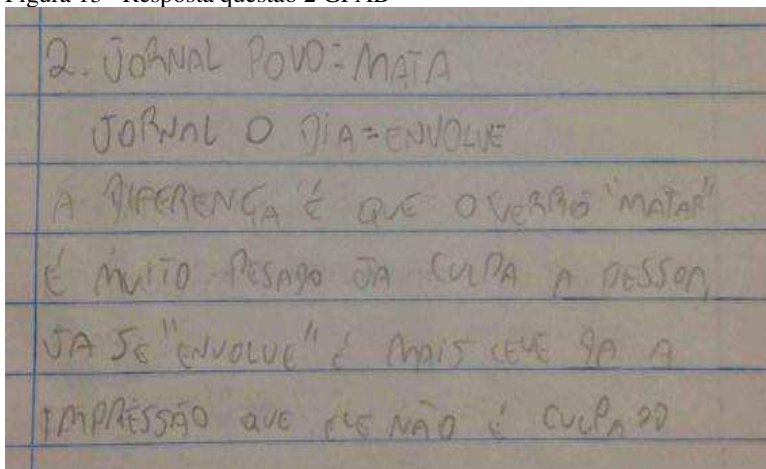 2. JORNAL POVO = MATA
JORNAL O DIA = ENVOLVE
A DIFERENÇA É QUE O VERBO "MATAR"
É MUITO PESADO JA CULPA A PESSOA,
JA SE "ENVOLVE" É MAIS LEVE DA A
IMPRESSÃO QUE ELE NÃO É CULPADO